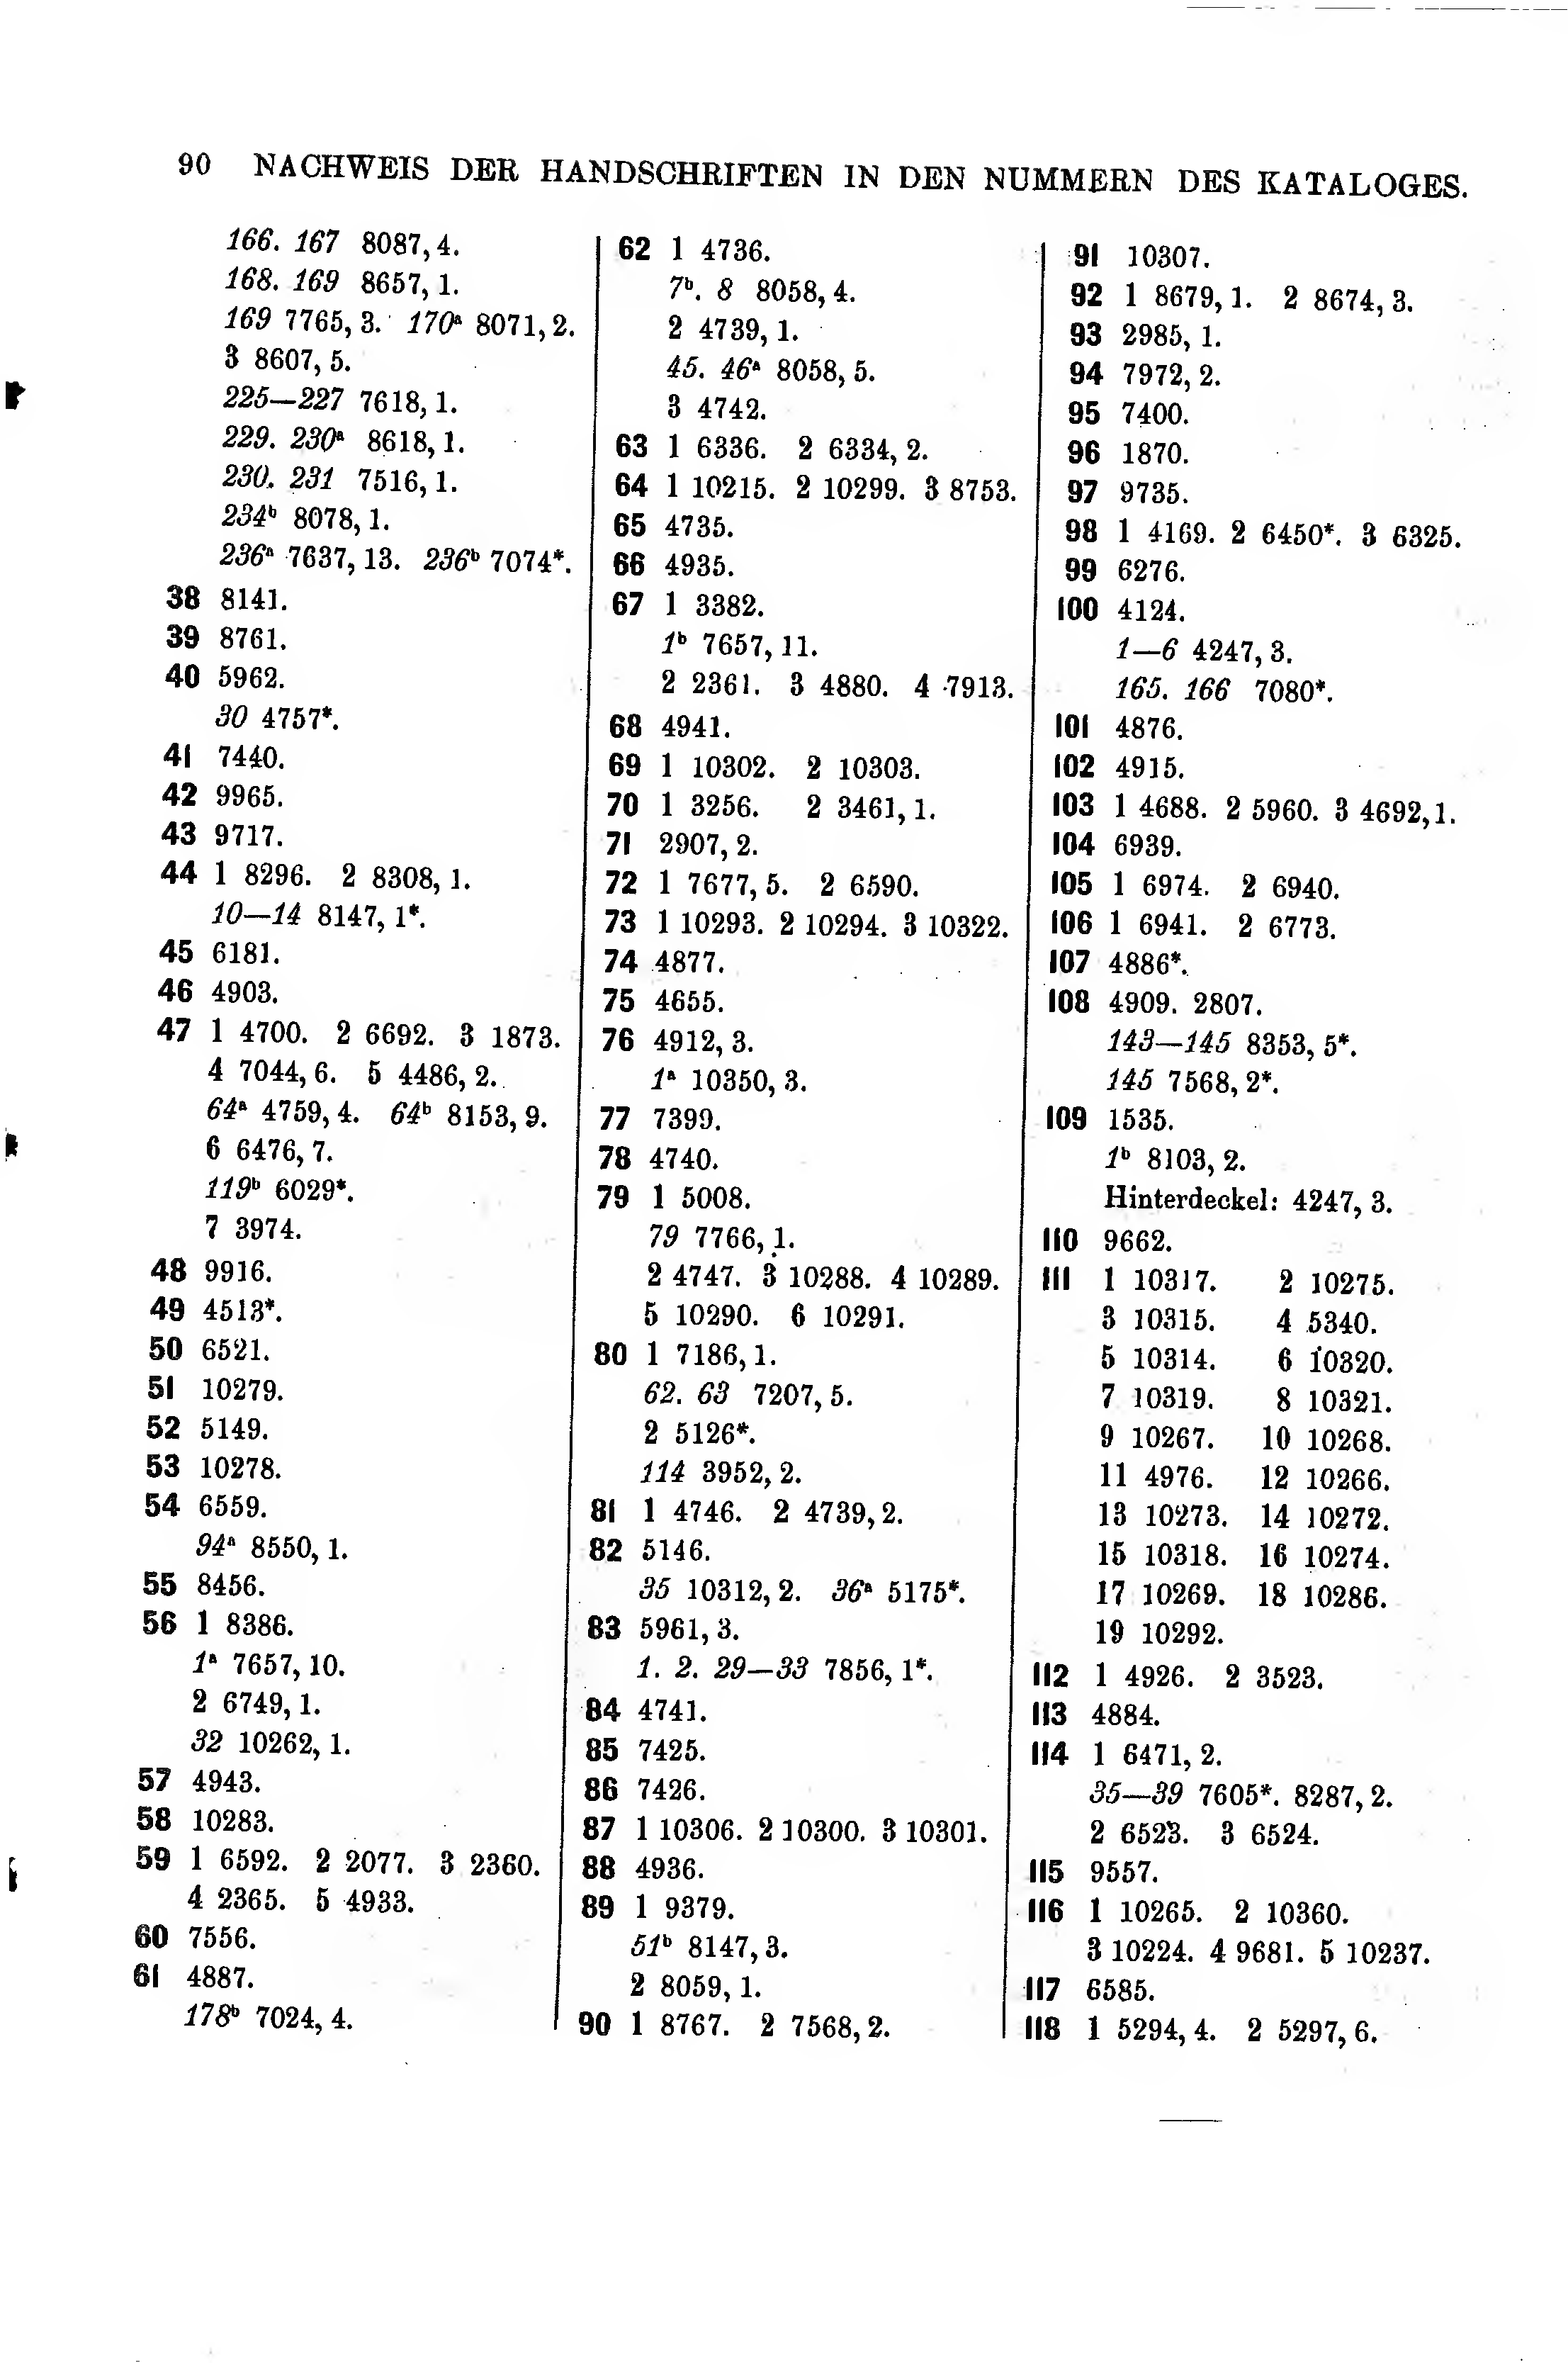 90 NACHWEIS DER HANDSCHRIFTEN IN DEN NUMMERN DES KATALOGES.
166. 167 8087, 4.
168. 169 8657, 1.
169 7765, 3. 170ᵃ 8071, 2.
3 8607, 5.
225—227 7618, 1.
229. 230ᵃ 8618, 1.
230. 231 7516, 1.
234ᵇ 8078, 1.
236ᵃ 7637, 13. 236ᵇ 7074*.
38 8141.
39 8761.
40 5962.
30 4757*.
41 7440.
42 9965.
43 9717.
44 1 8296. 2 8308, 1.
10—14 8147, 1*.
45 6181.
46 4903.
47 1 4700. 2 6692. 3 1873.
4 7044, 6. 5 4486, 2.
64ᵃ 4759, 4. 64ᵇ 8153, 9.
6 6476, 7.
119ᵇ 6029*.
7 3974.
48 9916.
49 4513*.
50 6521.
51 10279.
52 5149.
53 10278.
54 6559.
94ᵃ 8550, 1.
55 8456.
56 1 8386.
1ᵃ 7657, 10.
2 6749, 1.
32 10262, 1.
57 4943.
58 10283.
59 1 6592. 2 2077. 3 2360.
4 2365. 5 4933.
60 7556.
61 4887.
178ᵇ 7024, 4.
62 1 4736.
7ᵇ. 8 8058, 4.
2 4739, 1.
45. 46ᵃ 8058, 5.
3 4742.
63 1 6336. 2 6334, 2.
64 1 10215. 2 10299. 3 8753.
65 4735.
66 4935.
67 1 3382.
1ᵇ 7657, 11.
2 2361. 3 4880. 4 7913.
68 4941.
69 1 10302. 2 10303.
70 1 3256. 2 3461, 1.
71 2907, 2.
72 1 7677, 5. 2 6590.
73 1 10293. 2 10294. 3 10322.
74 4877.
75 4655.
76 4912, 3.
1ᵃ 10350, 3.
77 7399.
78 4740.
79 1 5008.
79 7766, 1.
2 4747. 3 10288. 4 10289.
5 10290. 6 10291.
80 1 7186, 1.
62. 63 7207, 5.
2 5126*.
114 3952, 2.
81 1 4746. 2 4739, 2.
82 5146.
35 10312, 2. 36ᵃ 5175*.
83 5961, 3.
1. 2. 29—33 7856, 1*.
84 4741.
85 7425.
86 7426.
87 1 10306. 2 10300. 3 10301.
88 4936.
89 1 9379.
51ᵇ 8147, 3.
2 8059, 1.
90 1 8767. 2 7568, 2.
91 10307.
92 1 8679, 1. 2 8674, 3.
93 2985, 1.
94 7972, 2.
95 7400.
96 1870.
97 9735.
98 1 4169. 2 6450*. 3 6325.
99 6276.
100 4124.
1—6 4247, 3.
165. 166 7080*.
101 4876.
102 4915.
103 1 4688. 2 5960. 3 4692, 1.
104 6939.
105 1 6974. 2 6940.
106 1 6941. 2 6773.
107 4886*.
108 4909. 2807.
143—145 8353, 5*.
145 7568, 2*.
109 1535.
1ᵇ 8103, 2.
Hinterdeckel: 4247, 3.
110 9662.
111 1 10317. 2 10275.
3 10315. 4 5340.
5 10314. 6 10320.
7 10319. 8 10321.
9 10267. 10 10268.
11 4976. 12 10266.
13 10273. 14 10272.
15 10318. 16 10274.
17 10269. 18 10286.
19 10292.
112 1 4926. 2 3523.
113 4884.
114 1 6471, 2.
35—39 7605*. 8287, 2.
2 6523. 3 6524.
115 9557.
116 1 10265. 2 10360.
3 10224. 4 9681. 5 10237.
117 6585.
118 1 5294, 4. 2 5297, 6.